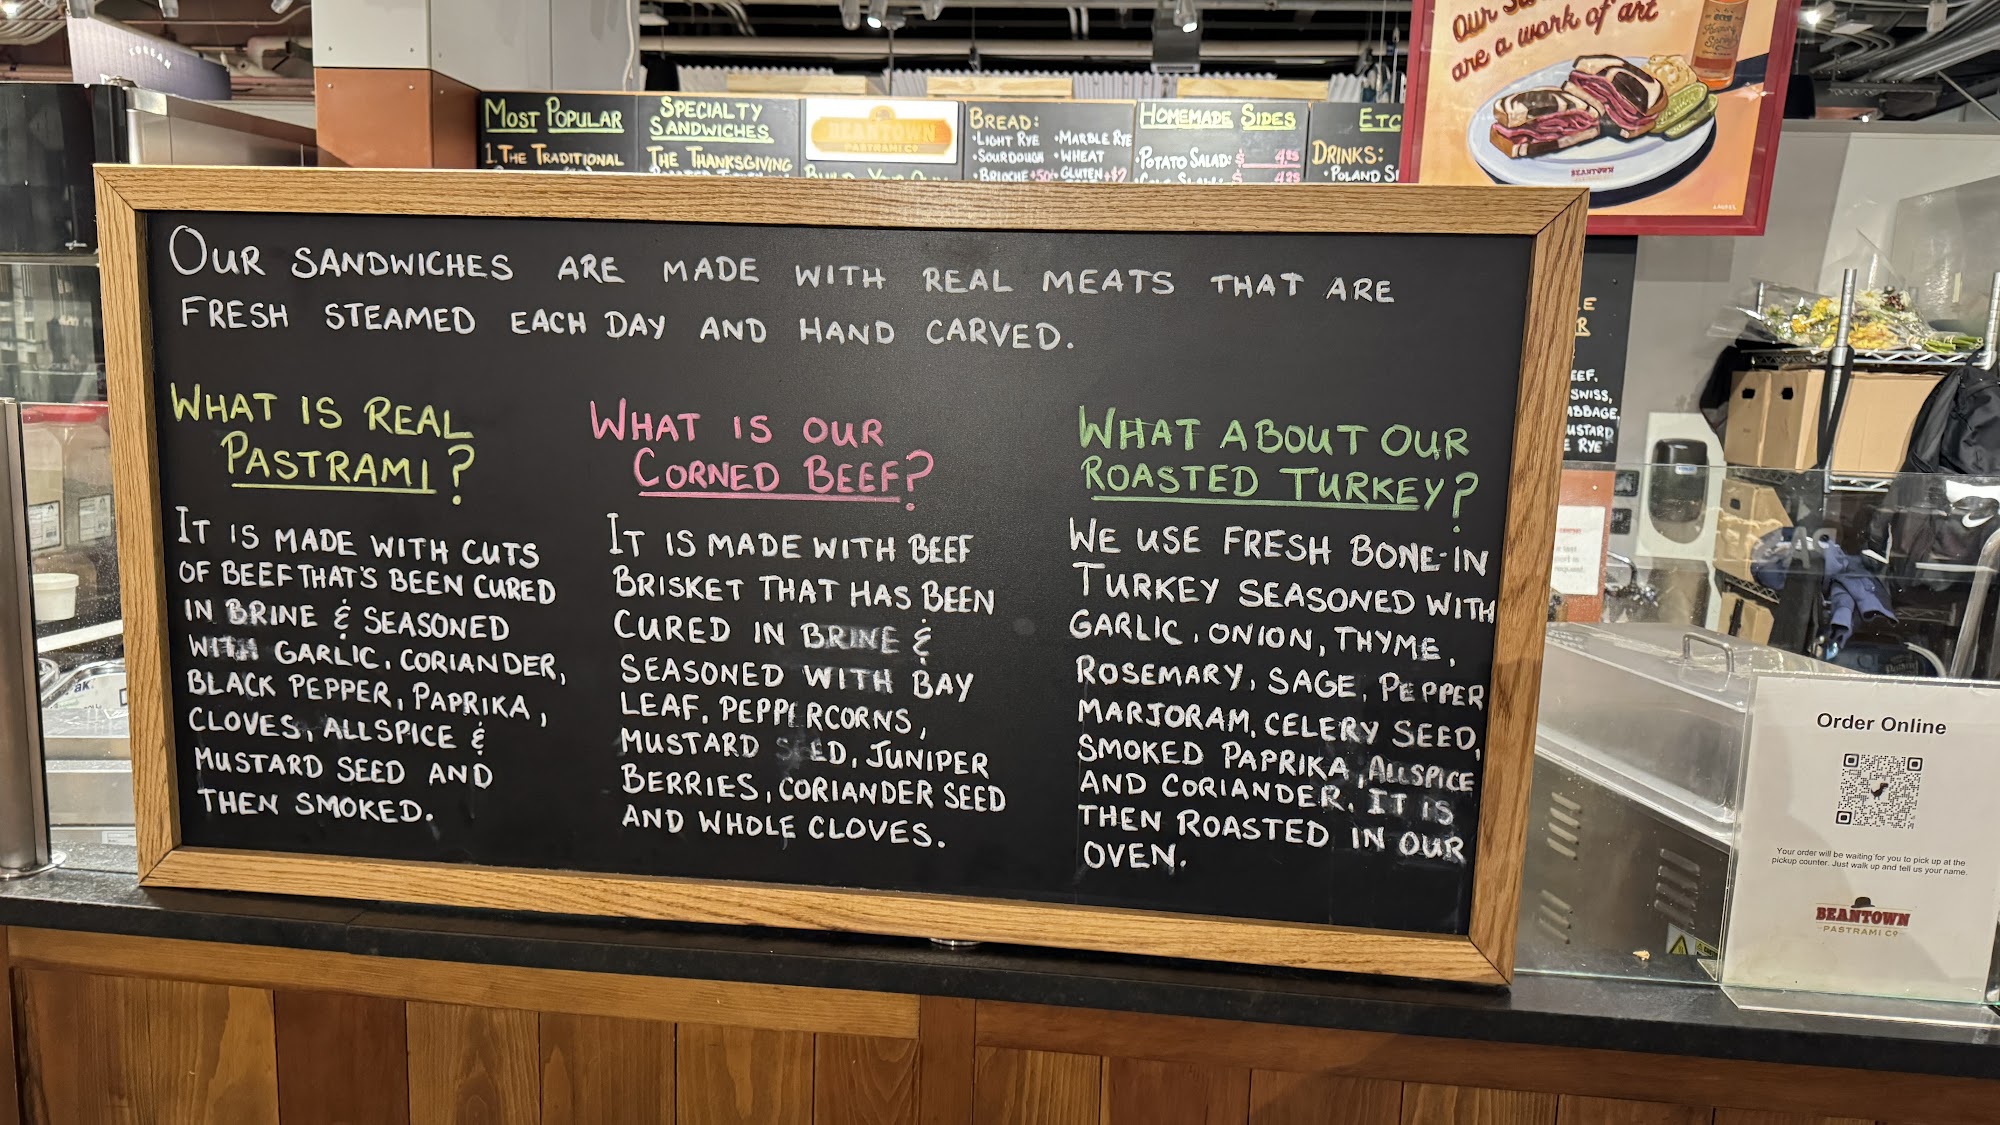 KOREAN
MOST POPULAR
1. THE TRADITIONAL
SPECIALTY
SANDWICHES
THE THANKSGIVING
BEANTOWN
PASTRAMI CO
BUILD YOUR OWN
BREAD:
• LIGHT RYE • MARBLE RYE
• SOURDOUGH • WHEAT
• BRIOCHE +50¢ • GLUTEN +$2
HOMEMADE SIDES
• POTATO SALAD: $ 4.25
$ 4.25
ETC
DRINKS:
• POLAND
Our
are a work of art
BEANTOWN
OUR SANDWICHES ARE MADE WITH REAL MEATS THAT ARE
FRESH STEAMED EACH DAY AND HAND CARVED.
WHAT IS REAL
PASTRAMI?
IT IS MADE WITH CUTS
OF BEEF THAT'S BEEN CURED
IN BRINE & SEASONED
WITH GARLIC, CORIANDER,
BLACK PEPPER, PAPRIKA,
CLOVES, ALLSPICE &
MUSTARD SEED AND
THEN SMOKED.
WHAT IS OUR
CORNED BEEF?
IT IS MADE WITH BEEF
BRISKET THAT HAS BEEN
CURED IN BRINE &
SEASONED WITH BAY
LEAF, PEPPERCORNS,
MUSTARD SEED, JUNIPER
BERRIES, CORIANDER SEED
AND WHOLE CLOVES.
WHAT ABOUT OUR
ROASTED TURKEY?
WE USE FRESH BONE-IN
TURKEY SEASONED WITH
GARLIC, ONION, THYME,
ROSEMARY, SAGE, PEPPER
MARJORAM, CELERY SEED,
SMOKED PAPRIKA, ALLSPICE
AND CORIANDER. IT IS
THEN ROASTED IN OUR
OVEN.
SWISS,
RYE
Order Online
Your order will be waiting for you to pick up at the
pickup counter. Just walk up and tell us your name.
BEANTOWN
PASTRAMI CO